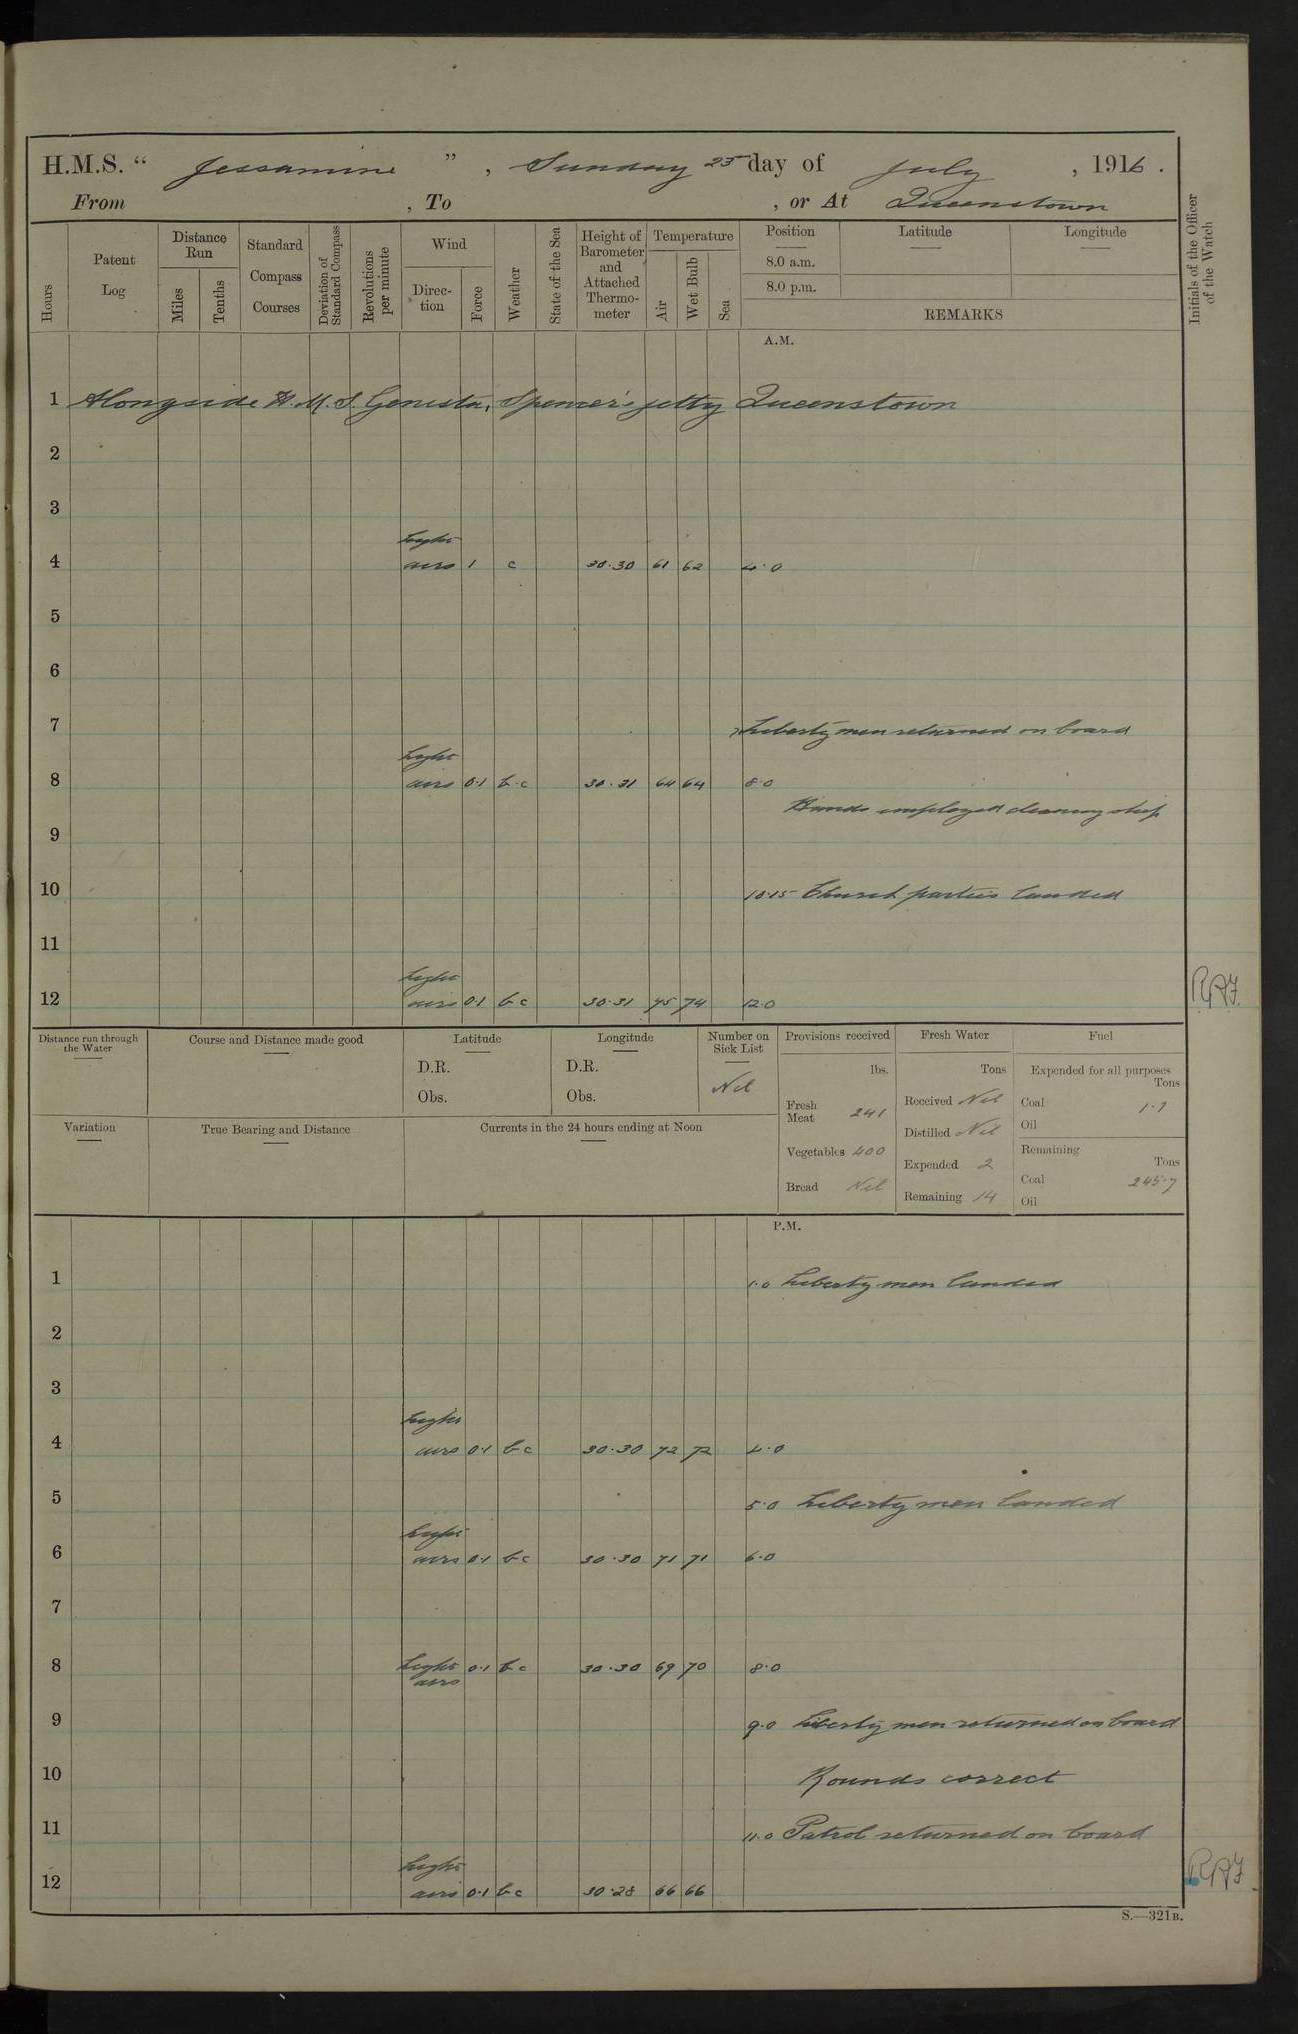 H.M.S. “ Jessamine ” , Sunday 23 day of July , 1916 .
From , To , or At Queenstown
Hours
Patent Log
Distance Run
Miles
Tenths
Standard Compass Courses
Deviation of Standard Compass
Revolutions per minute
Wind
Direction
Force
Weather
State of the Sea
Height of Barometer and Attached Thermometer
Temperature
Air
Wet Bulb
Sea
Position
8.0 a.m.
8.0 p.m.
Latitude
Longitude
REMARKS
Initials of the Officer of the Watch
A.M.
1 Alongside H.M.S. Genista, Spencer's jetty Queenstown
2
3
4 Light airs 1 c 30.30 61 62 4.0
5
6
7 7 Liberty men returned on board
8 Light airs 0.1 b.c 30.31 64 64 8.0
Hands employed cleaning ship
9
10 10.15 Church parties landed
11
12 Light airs 0.1 b c 30.31 75 74 12.0
Distance run through the Water
Course and Distance made good
Latitude
D.R.
Obs.
Longitude
D.R.
Obs.
Number on Sick List
Nil
Provisions received
lbs.
Fresh Meat 241
Vegetables 400
Bread Nil
Fresh Water
Tons
Received Nil
Distilled Nil
Expended 2
Remaining 14
Fuel
Expended for all purposes
Tons
Coal 1.7
Oil
Remaining
Tons
Coal 245.7
Oil
Variation
True Bearing and Distance
Currents in the 24 hours ending at Noon
P.M.
1 1.0 Liberty men landed
2
3
4 Light airs 0.1 b c 30.30 72 72 4.0
5 5.0 Liberty men landed
6 Light airs 0.1 b c 30.30 71 71 6.0
7
8 Light airs 0.1 b c 30.30 69 70 8.0
9 9.0 Liberty men returned on board
10 Rounds correct
11 11.0 Patrol returned on board
12 Light airs 0.1 b c 30.28 66 66
S.—321B.